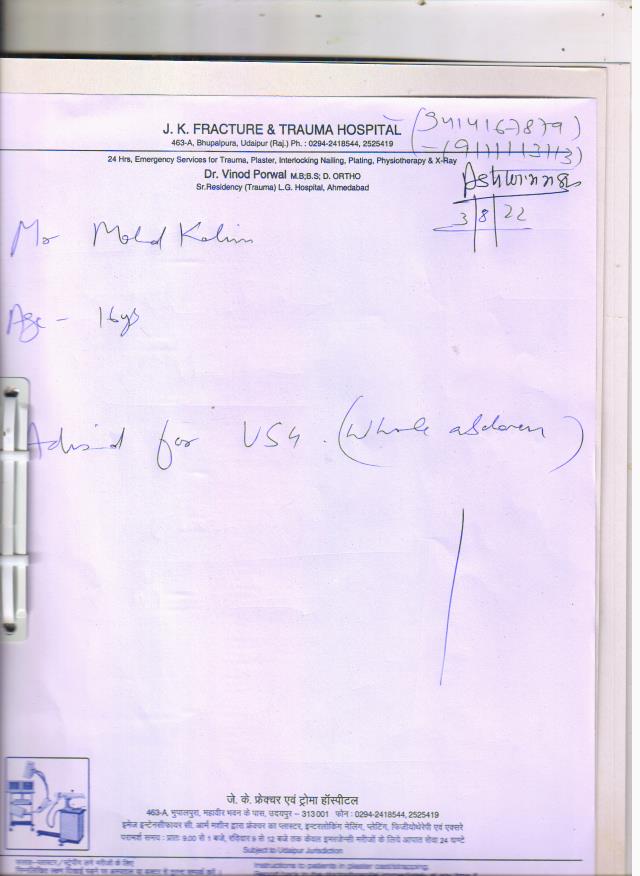 J. K. FRACTURE & TRAUMA HOSPITAL
463-A, Bhupalpura, Udaipur (Raj.) Ph. : 0294-2418544, 2525419
(9414167879)
24 Hrs, Emergency Services for Trauma, Plaster, Interlocking Nailing, Plating, Physiotherapy & X-Ray
Dr. Vinod Porwal M.B;B.S; D. ORTHO
Sr.Residency (Trauma) L.G. Hospital, Ahmedabad
3 | 8 | 22
Mr Mohd Kalim
Age - 16 ys
Advised for USG. (Whole abdomen)
जे. के. फ्रेक्चर एवं ट्रोमा हॉस्पीटल
463-A, भुपालपुरा, महावीर भवन के पास, उदयपुर – 313001 फोन : 0294-2418544, 2525419
इमेज इन्टेनसीफायर सी. आर्म मशीन द्वारा फ्रेक्चर का प्लास्टर, इन्टरलोकिंग नेलिंग, प्लेटिंग, फिजीयोथेरेपी एवं एक्सरे
परामर्श समय : प्रातः 9.00 से 1 बजे, रविवार 9 से 12 बजे तक केवल इमरजेन्सी मरीजों के लिए आपात सेवा 24 घण्टे
Subject to Udaipur Jurisdiction
Instructions to patients in plaster cast/strapping.